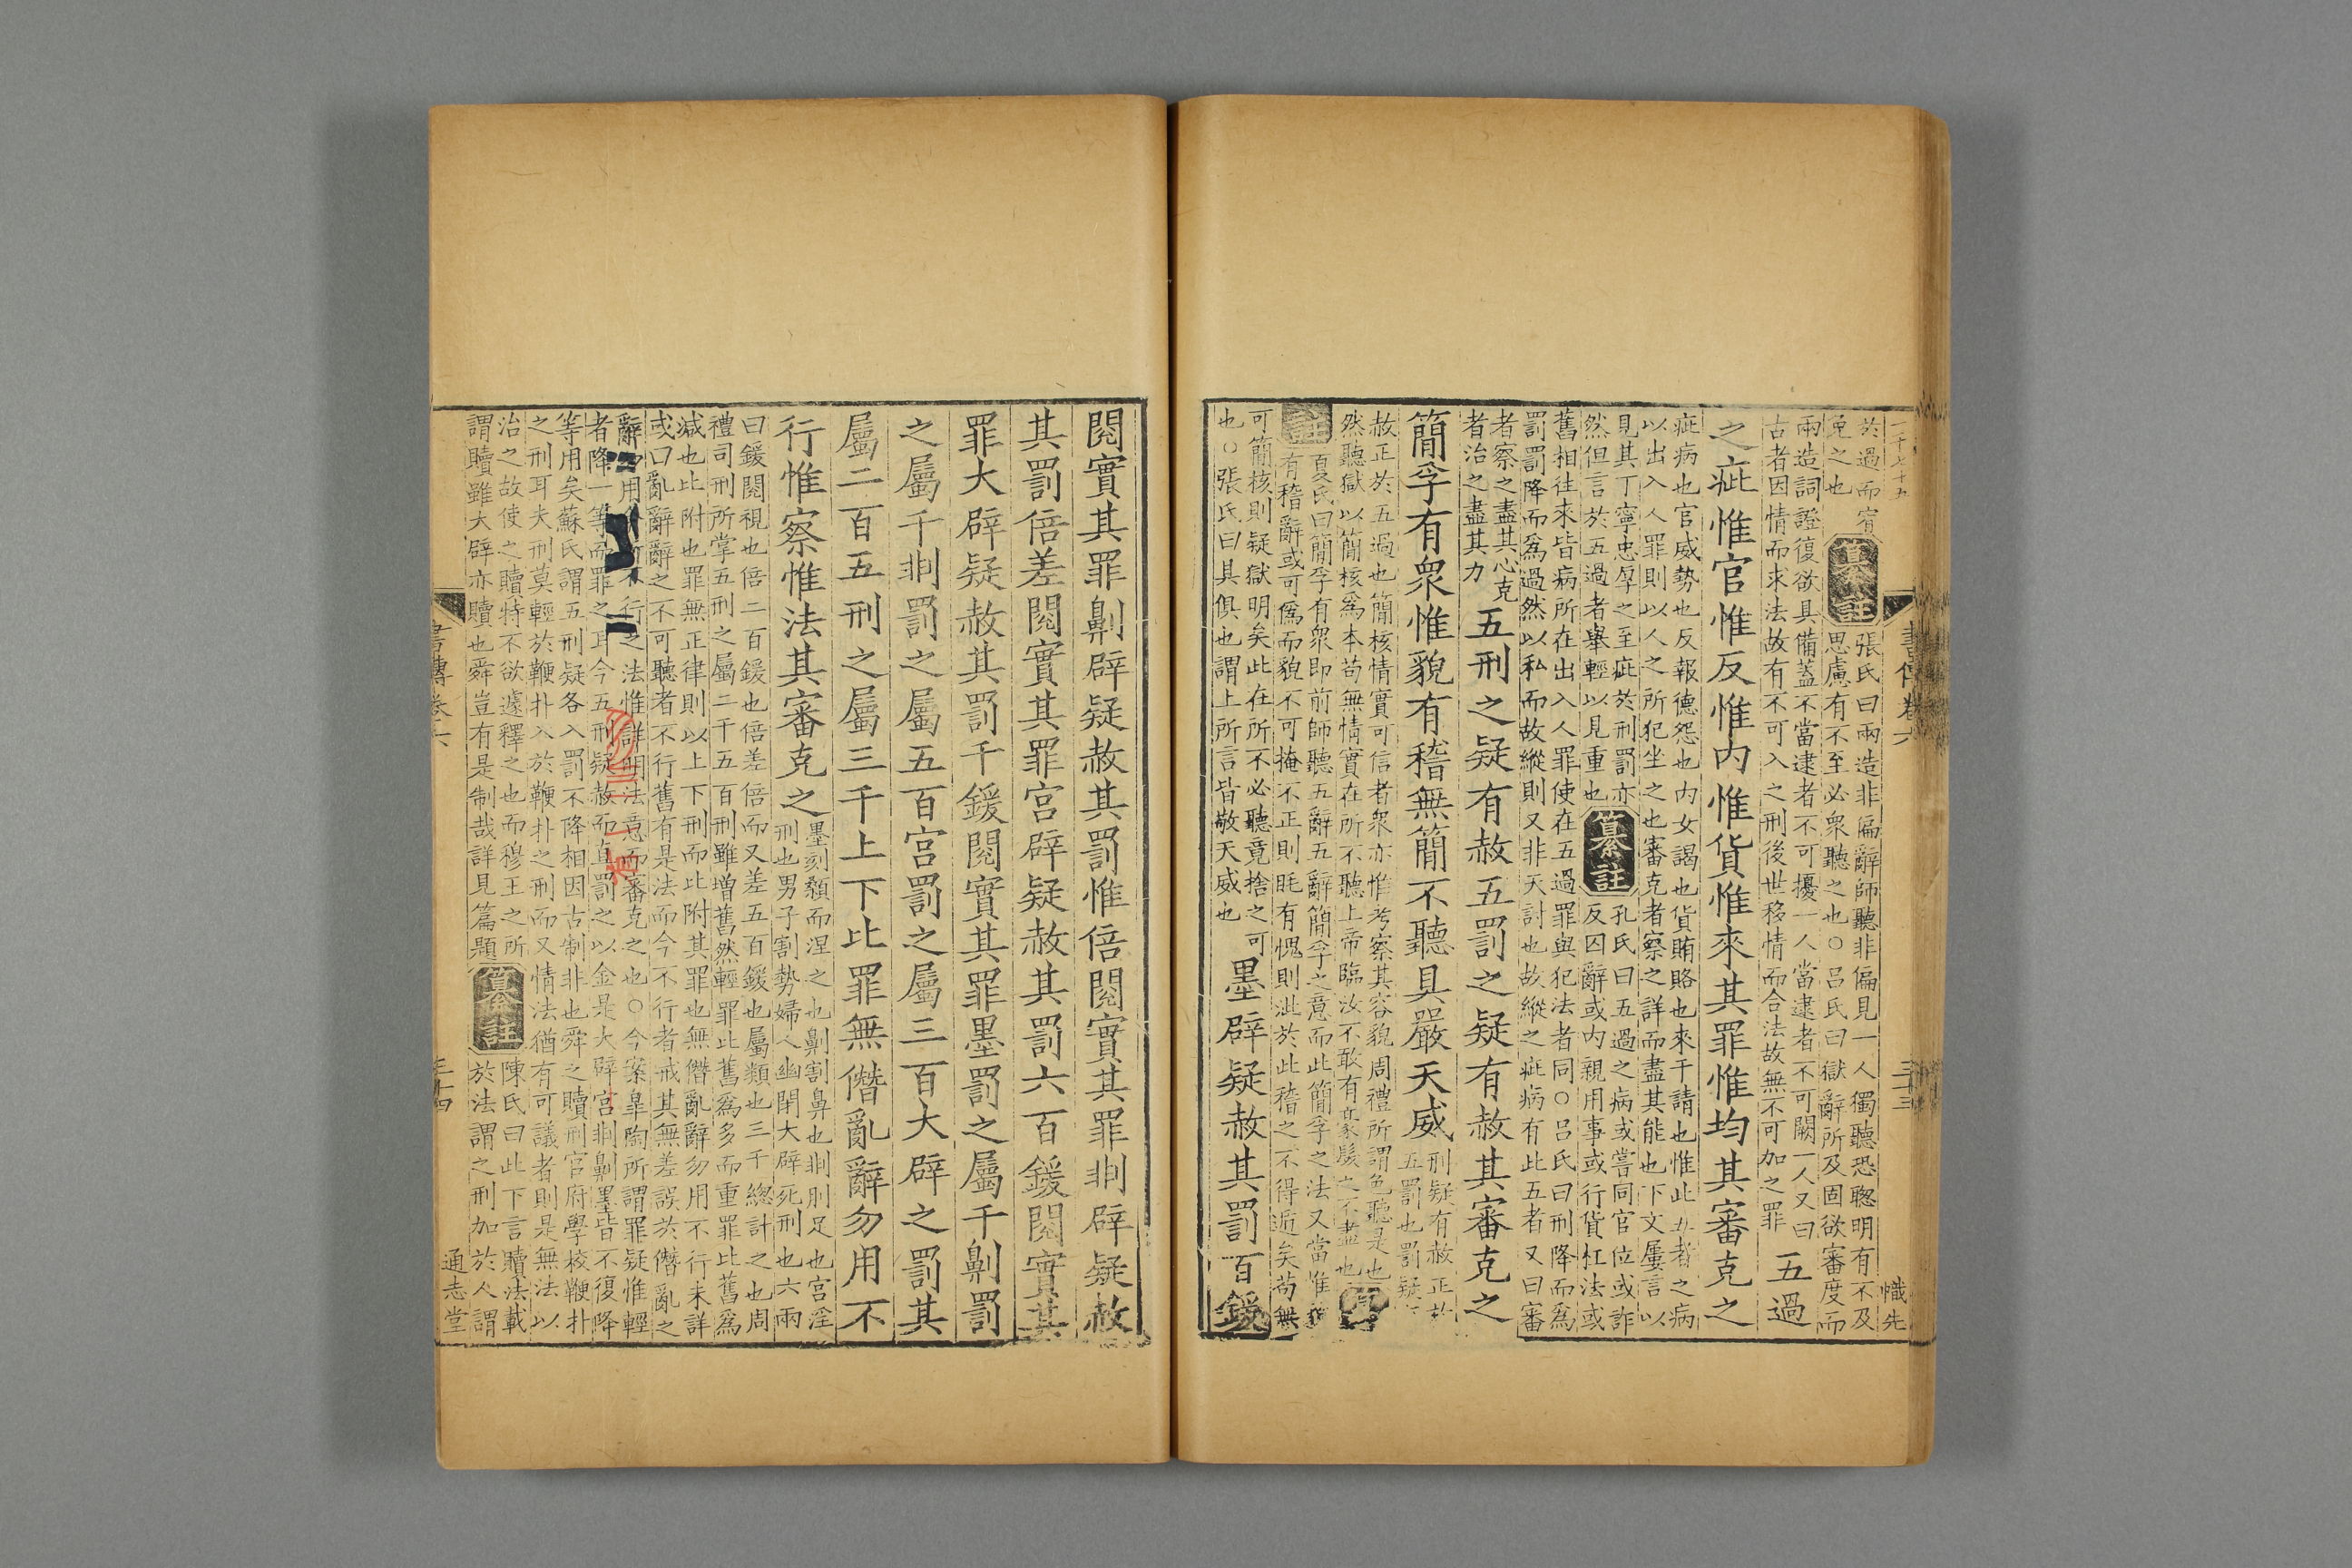 一千七十五
幟先
書傳卷六
三十三
於過而宥
免之也
纂註
張氏曰兩造非偏辭師聽非偏見一人獨聽恐聰明有不及
思慮有不至必衆聽之也○呂氏曰獄辭所及固欲審度而
兩造詞證復欲具備蓋不當逮者不可擾一人當逮者不可闕一人又曰
古者因情而求法故有不可入之刑後世移情而合法故無不可加之罪
五過
之疵惟官惟反惟内惟貨惟來其罪惟均其審克之
疵病也官威勢也反報德怨也内女謁也貨賄賂也來干請也惟此五者之病
以出入人罪則以人之所犯坐之也審克者察之詳而盡其能也下文屢言以
見其丁寧忠厚之至疵於刑罰亦
然但言於五過者舉輕以見重也
纂註
孔氏曰五過之病或嘗同官位或詐
反囚辭或内親用事或行貨枉法或
舊相往來皆病所在出入人罪使在五過罪與犯法者同○呂氏曰刑降而爲
罰罰降而爲過然以私而故縱則又非天討也故縱之疵病有此五者又曰審
者察之盡其心克
者治之盡其力
五刑之疑有赦五罰之疑有赦其審克之
簡孚有衆惟貌有稽無簡不聽具嚴天威
刑疑有赦正於
五罰也罰疑
赦正於五過也簡核情實可信者衆亦惟考察其容貌周禮所謂色聽是也
然聽獄以簡核爲本苟無情實在所不聽上帝臨汝不敢有毫髮之不盡也
註
夏氏曰簡孚有衆即前師聽五辭五辭簡孚之意而此簡孚之法又當惟
有稽辭或可僞而貌不可掩不正則眊有愧則泚於此稽之不得遁矣苟無
可簡核則疑獄明矣此在所不必聽竟捨之可
也○張氏曰具俱也謂上所言皆敬天威也
墨辟疑赦其罰百鍰
閱實其罪劓辟疑赦其罰惟倍閱實其罪剕辟疑赦
其罰倍差閱實其罪宮辟疑赦其罰六百鍰閱實其
罪大辟疑赦其罰千鍰閱實其罪墨罰之屬千劓罰
之屬千剕罰之屬五百宮罰之屬三百大辟之罰其
屬二百五刑之屬三千上下比罪無僭亂辭勿用不
行惟察惟法其審克之
墨刻顙而涅之也劓割鼻也剕刖足也宮淫
刑也男子割勢婦人幽閉大辟死刑也六兩
曰鍰閱視也倍二百鍰也倍差倍而又差五百鍰也屬類也三千總計之也周
禮司刑所掌五刑之屬二千五百刑雖增舊然輕罪比舊爲多而重罪比舊爲
減也比附也罪無正律則以上下刑而比附其罪也無僭亂辭勿用不行未詳
或曰亂辭辭之不可聽者不行舊有是法而今不行者戒其無差誤於僭亂之
辭勿用今所不行之法惟詳明法意而審克之也○今案皐陶所謂罪疑惟輕
者降一等而罪之耳今五刑疑赦而直罰之以金是大辟宮剕劓墨皆不復降
等用矣蘇氏謂五刑疑各入罰不降相因古制非也舜之贖刑官府學校鞭扑
之刑耳夫刑莫輕於鞭扑入於鞭扑之刑而又情法猶有可議者則是無法以
治之故使之贖特不欲遽釋之也而穆王之所
謂贖雖大辟亦贖也舜豈有是制哉詳見篇題
纂註
陳氏曰此下言贖法載
於法謂之刑加於人謂
書傳卷六
三十四
通志堂